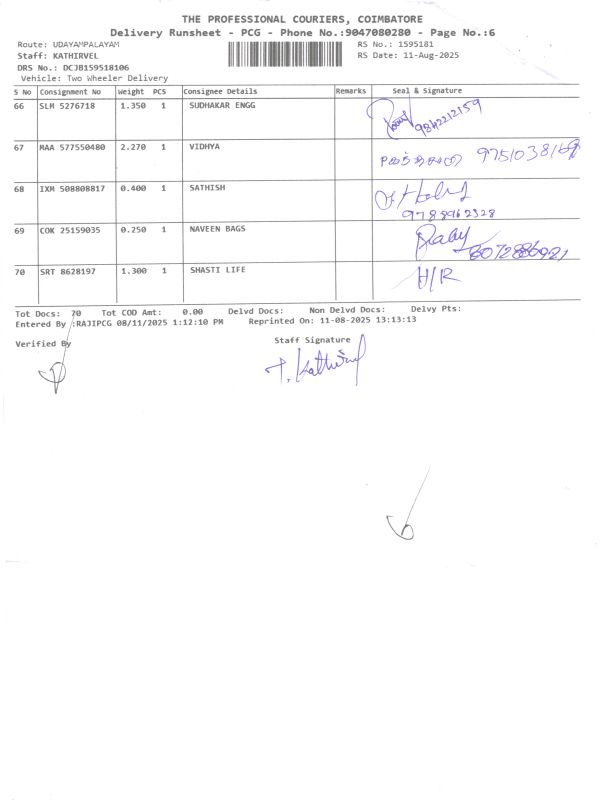 THE PROFESSIONAL COURIERS, COIMBATORE
Delivery Runsheet - PCG - Phone No.:9047080280 - Page No.:6
Route: UDAYAMPALAYAM RS No.: 1595181
Staff: KATHIRVEL RS Date: 11-Aug-2025
DRS No.: DCJB159518106
Vehicle: Two Wheeler Delivery
S No Consignment No Weight PCS Consignee Details Remarks Seal & Signature
66 SLM 5276718 1.350 1 SUDHAKAR ENGG
9842212159
67 MAA 577550480 2.270 1 VIDHYA 9751038169
68 IXM 508808817 0.400 1 SATHISH
9788962328
69 COK 25159035 0.250 1 NAVEEN BAGS Baby
8072886921
70 SRT 8628197 1.300 1 SHASTI LIFE H/R
Tot Docs: 70 Tot COD Amt: 0.00 Delvd Docs: Non Delvd Docs: Delvy Pts:
Entered By :RAJIPCG 08/11/2025 1:12:10 PM Reprinted On: 11-08-2025 13:13:13
Verified By Staff Signature
T. Kathirvel